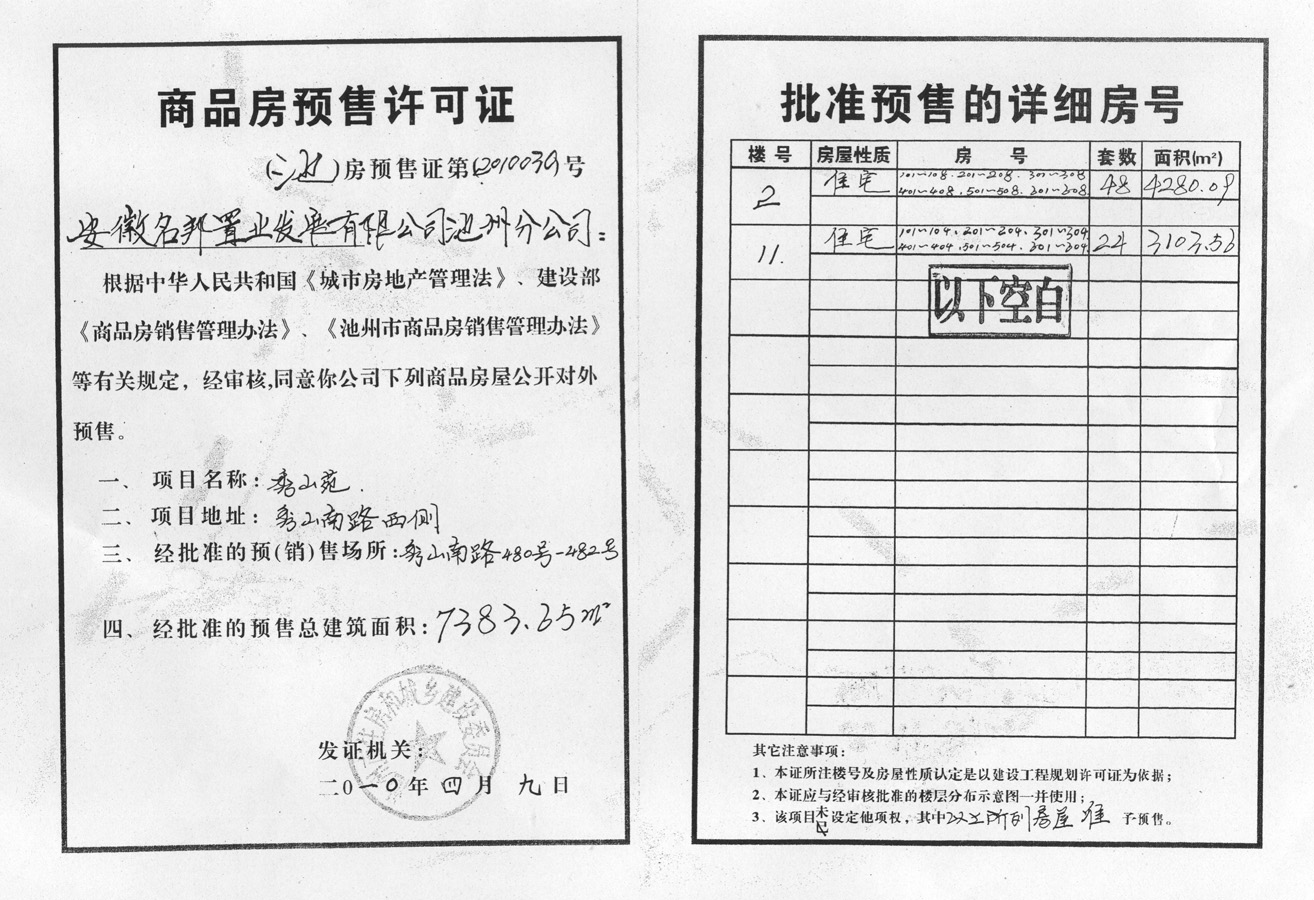 商品房预售许可证
房预售证第(2010039)号
安徽名邦置业发展有限公司池州分公司：
根据中华人民共和国《城市房地产管理法》、建设部
《商品房销售管理办法》、《池州市商品房销售管理办法》
等有关规定，经审核,同意你公司下列商品房屋公开对外
预售。
一、项目名称：秀山苑.
二、项目地址：秀山南路西侧
三、经批准的预(销)售场所：秀山南路480号-482号
四、经批准的预售总建筑面积：7383.65m²
住房和城乡建设委员会
发证机关：
二0一0年四月九日
批准预售的详细房号
楼号 房屋性质 房号 套数 面积(m²)
2 住宅 101~108.201~208.301~308 48 4280.09
401~408.501~508.301~308
11. 住宅 101~104.201~204.301~304 24 3103.56
401~404.501~504.301~304
以下空白
其它注意事项：
1、本证所注楼号及房屋性质认定是以建设工程规划许可证为依据；
2、本证应与经审核批准的楼层分布示意图一并使用；
3、该项目未已设定他项权，其中以上所列房屋准予预售。